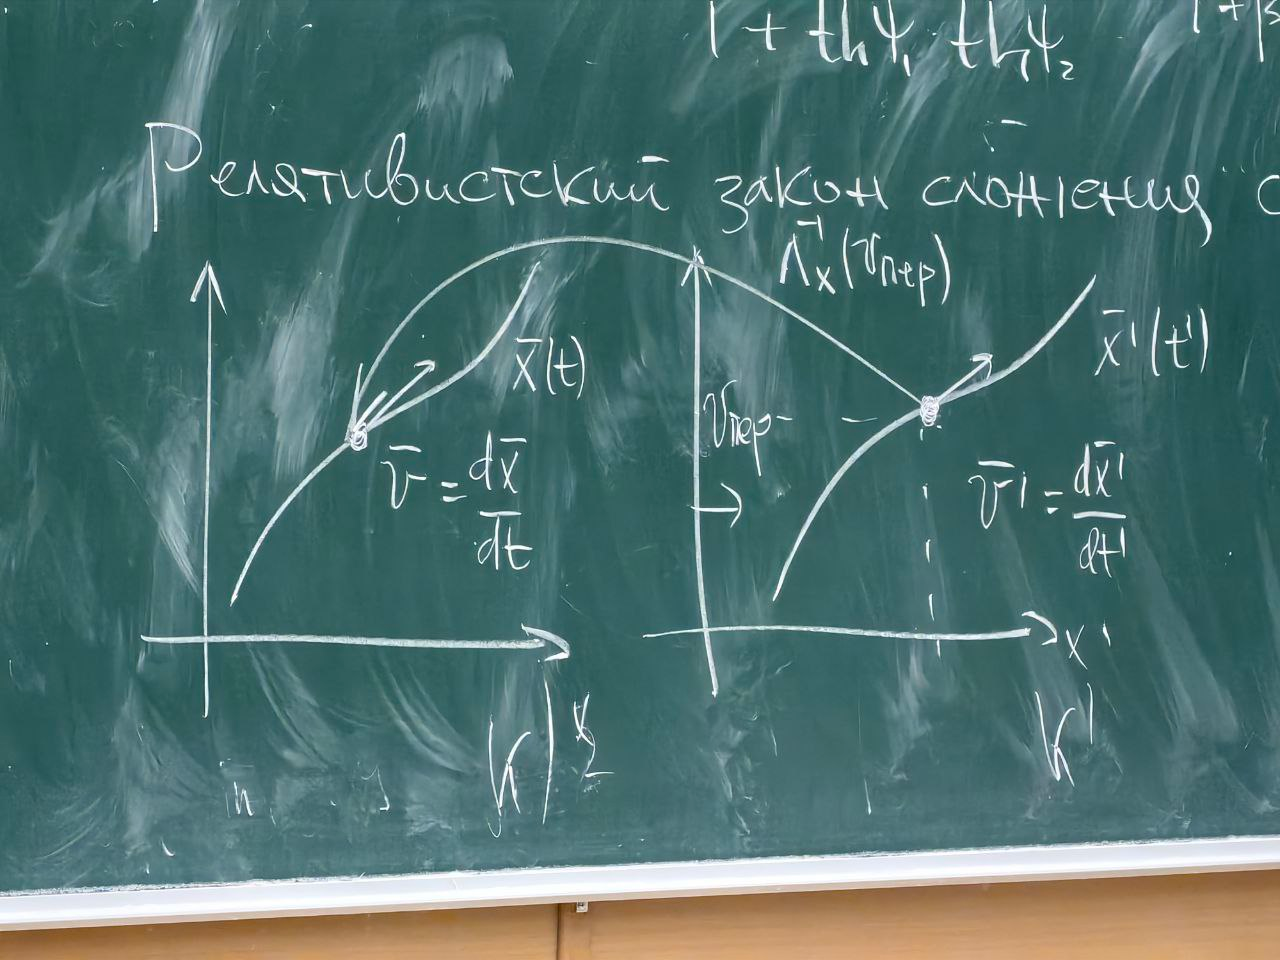 1 + thψ₁ thψ₂
1 + β
Релятивистский закон сложения
Λₓ⁻¹(vпер)
x̄(t)
x̄'(t')
vпер
v̄ = dx̄/dt
v̄' = dx̄'/dt'
x'
K
x
K'